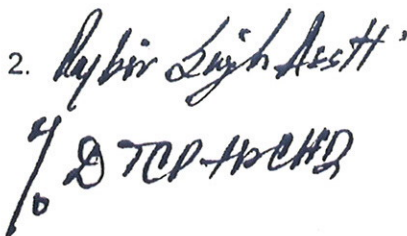 2. Rajbir Singh Asstt.
% DTCP Hr CHD